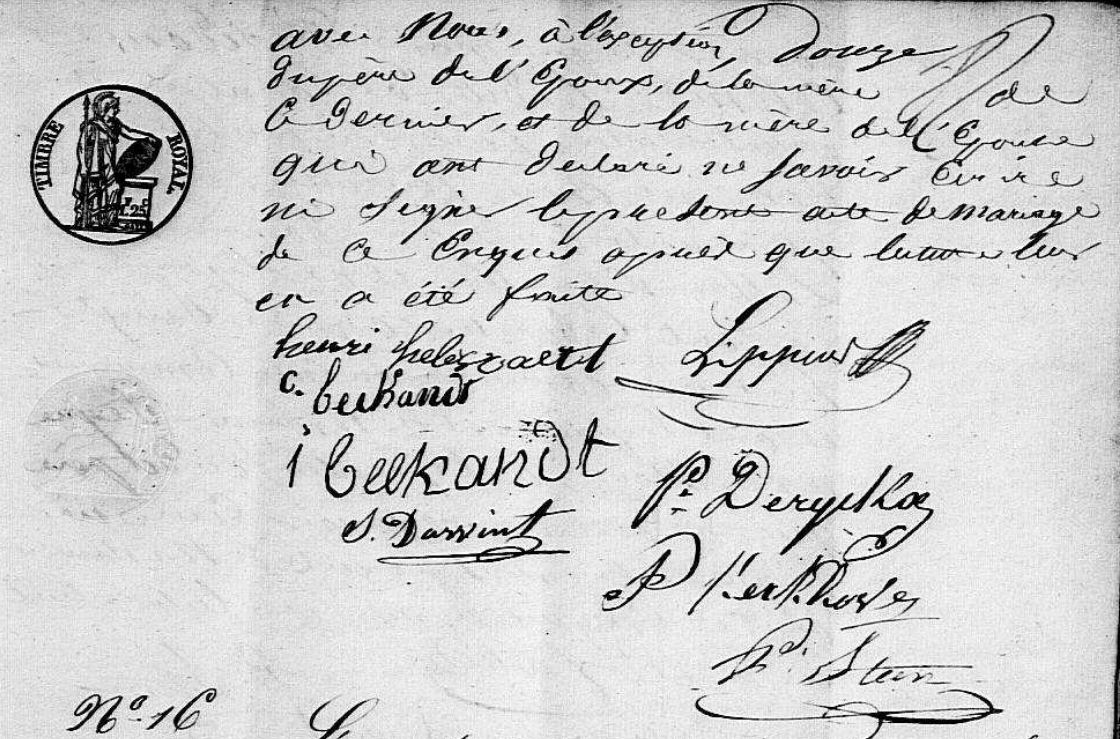 TIMBRE ROYAL
avec Nous, à l'exception
du père de l'Epoux, de la mère de
ce dernier, et de la mère de l'Epouse
qui ont declaré ne savoir Ecrire
ni signer le present acte de mariage
de ce Enquis après que lecture leur
en a été faite
henri
Lippins
c. beekandt
i beekandt
P. Deryckx
S. Dassvint
P Kerkhove
P. Steen
No. 16